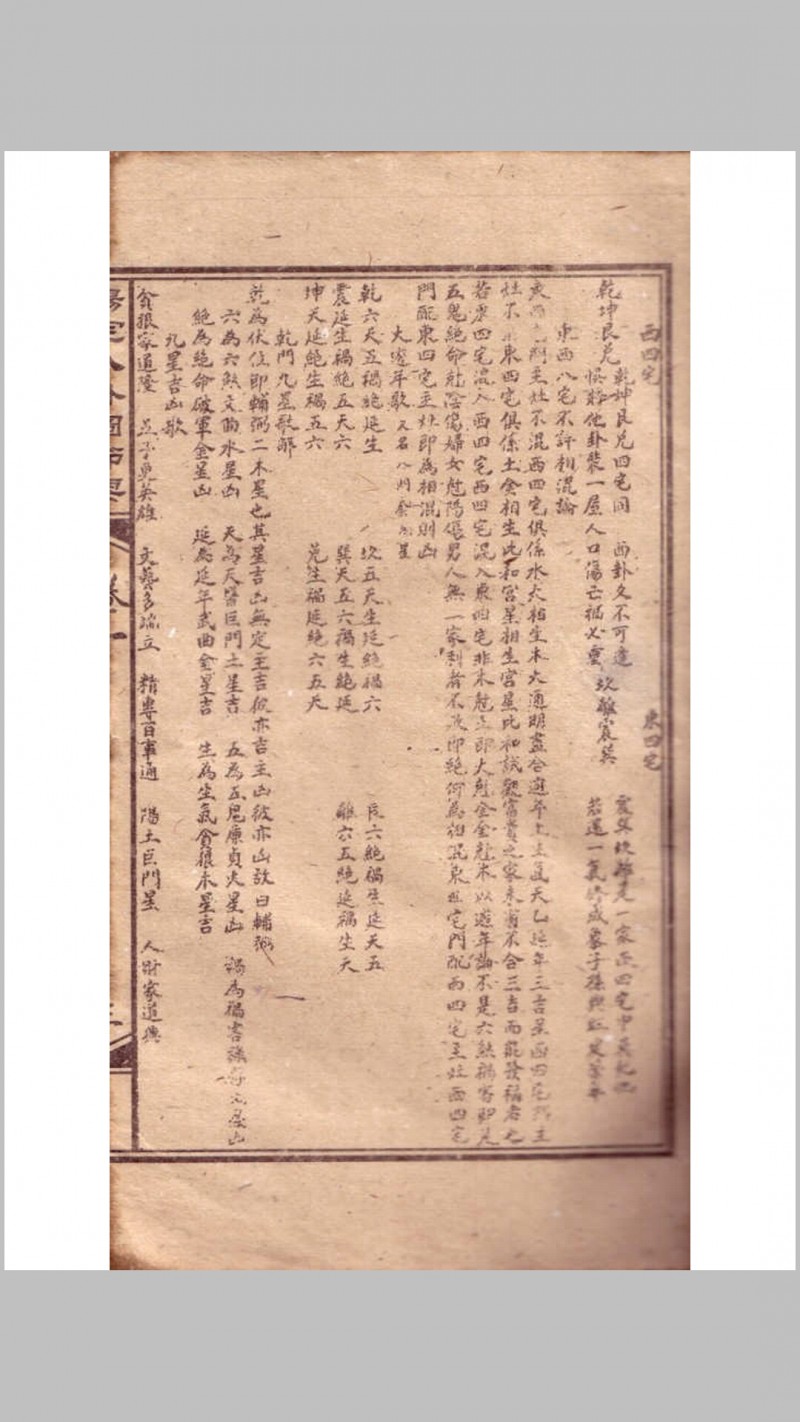 西四宅 東四宅
乾坤艮兑四宅同 西卦爻不可逢 震巽坎離是一家西四宅中莫犯他
乾坤艮兑 坎離震巽
悞將他卦裝一屋人口傷亡禍必重 若還一氣修成象子孫興旺
東西八宅不許相混論
東西 門主灶不混西四宅俱係水火相生木火通明盡合遊年上生氣天乙延年三吉星西四宅 主
灶不 東四宅俱係土金相生比和宮星相生宮星比和試觀富貴之家未有不合三吉而能發福者也
若東四宅混入西四宅西四宅混入東四宅非木尅土即火尅金金尅木以遊年論不是六煞禍害即是
五鬼絕命尅陰傷婦女尅陽傷男人無一家到者不敗即絕何為相混東四宅門配西四宅主灶西四宅
門配東四宅主灶即為相混則凶
大遊年歌 又名八門 星
乾六天五禍絕延生 坎五天生延絕禍六 艮六絕禍生延天五
震延生禍絕五天六 巽天五六禍生絕延 離六五絕延禍生天
坤天延絕生禍五六 兑生禍延絕六五天
乾門九星歌解
乾為伏位即輔弼二木星也其星吉凶無定主吉彼亦吉主凶彼亦凶故曰輔弼
六為六煞文曲水星凶 天為天醫巨門土星吉 五為五鬼廉貞火星凶 禍為禍害祿存土星凶
絕為絕命破軍金星凶 延為延年武曲金星吉 生為生氣貪狼木星吉
九星吉凶歌
貪狼家道隆 五子更英雄 文藝多端立 精專百事通 陽土巨門星 人財家道興
卷